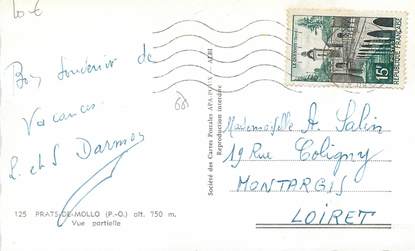 10 €
Bon Souvenir de
Vacances.
R. et S Darmes
125 PRATS-DE-MOLLO (P.-O.) alt. 750 m.
Vue partielle
Société des Cartes Postales APA-POUX - ALBI
Reproduction interdite
15F
RÉPUBLIQUE FRANÇAISE
Mademoiselle A. Salin
19 Rue Coligny
MONTARGIS
LOIRET